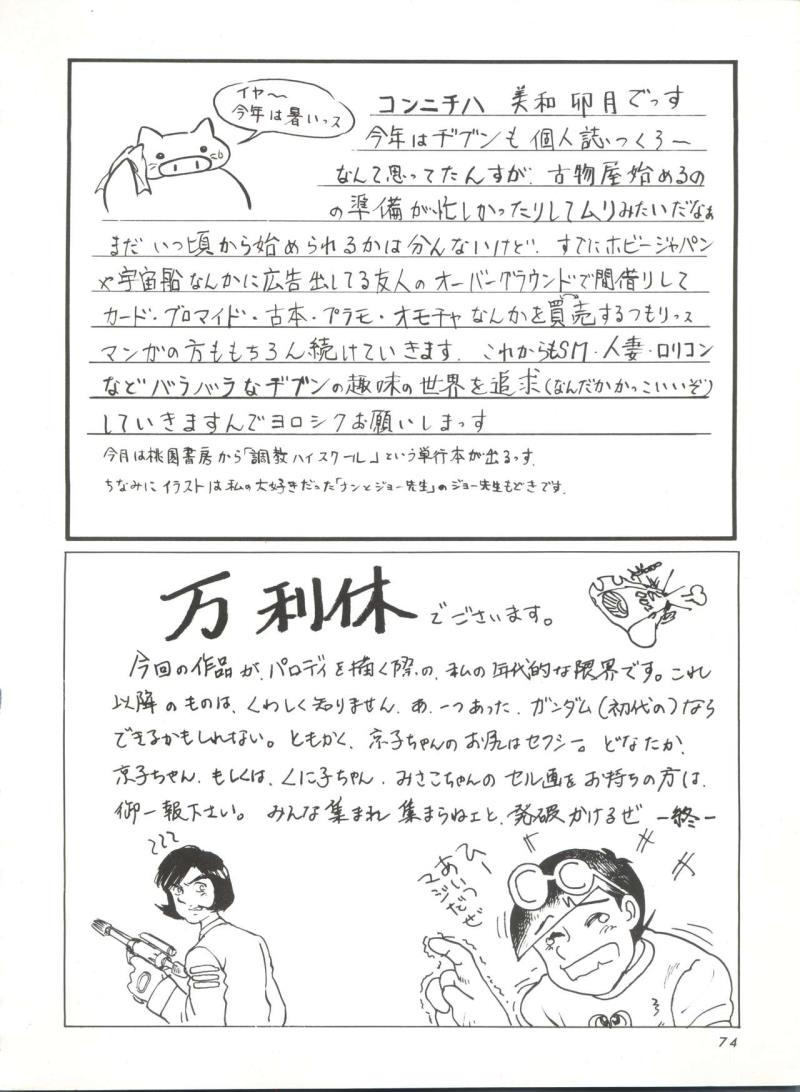 イヤ〜
今年は暑いっス
コンニチハ 美和卯月でっす
今年はヂブンも個人誌つくろ〜
なんて思ってたんすが、古物屋始めるの
の準備が忙しかったりしてムリみたいだなぁ
まだいつ頃から始められるかは分んないけど、すでにホビージャパン
や宇宙船なんかに広告出してる友人のオーバーグラウンドで間借りして
カード・ブロマイド・古本・プラモ・オモチャなんかを買売するつもりっス
マンガの方ももちろん続けていきます、これからもSM・人妻・ロリコン
などバラバラなヂブンの趣味の世界を追求(なんだかかっこいいぞ)
していきますんでヨロシクお願いしまっす
今月は桃園書房から「調教ハイスクール」という単行本が出るっす、
ちなみにイラストは私の大好きだった「ナンとジョー先生」のジョー先生もどきです、
万利休でございます。
今回の作品が、パロディを描く際の、私の年代的な限界です。これ
以降のものは、くわしく知りません、あ、一つあった、ガンダム(初代の)なら
できるかもしれない。ともかく、京子ちゃんのお尻はセクシー。どなたか、
京子ちゃん、もしくは、くに子ちゃん、みさこちゃんのセル画をお持ちの方は、
御一報下さい。みんな集まれ 集まらねェと、発破かけるぜ ー終ー
あひー
あいつ
マジだも
74